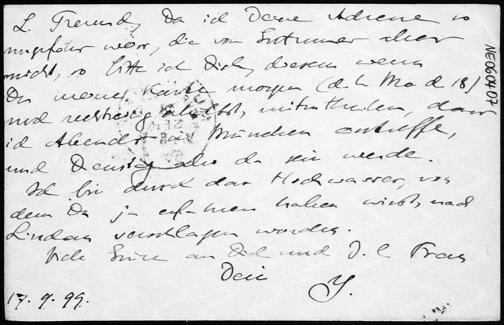 L. Freund, Da ich Deine Adresse so
ungefähr weiss, die von aber
nicht, so bitte ich Dich, wenn
Du meine Karte morgen (d. h. Mo d 18)
und rechtzeitig erhältst, mitzutheilen, dass
ich Abends in München eintreffe,
und Dienstag also da sein werde.
Ich bin durch das Hochwasser, von
dem Du ja erfahren haben wirst, nach
Lindau verschlagen worden.
Viele Grüsse an Dich und D. l. Frau
Dein
17. 9. 99.
NE060407